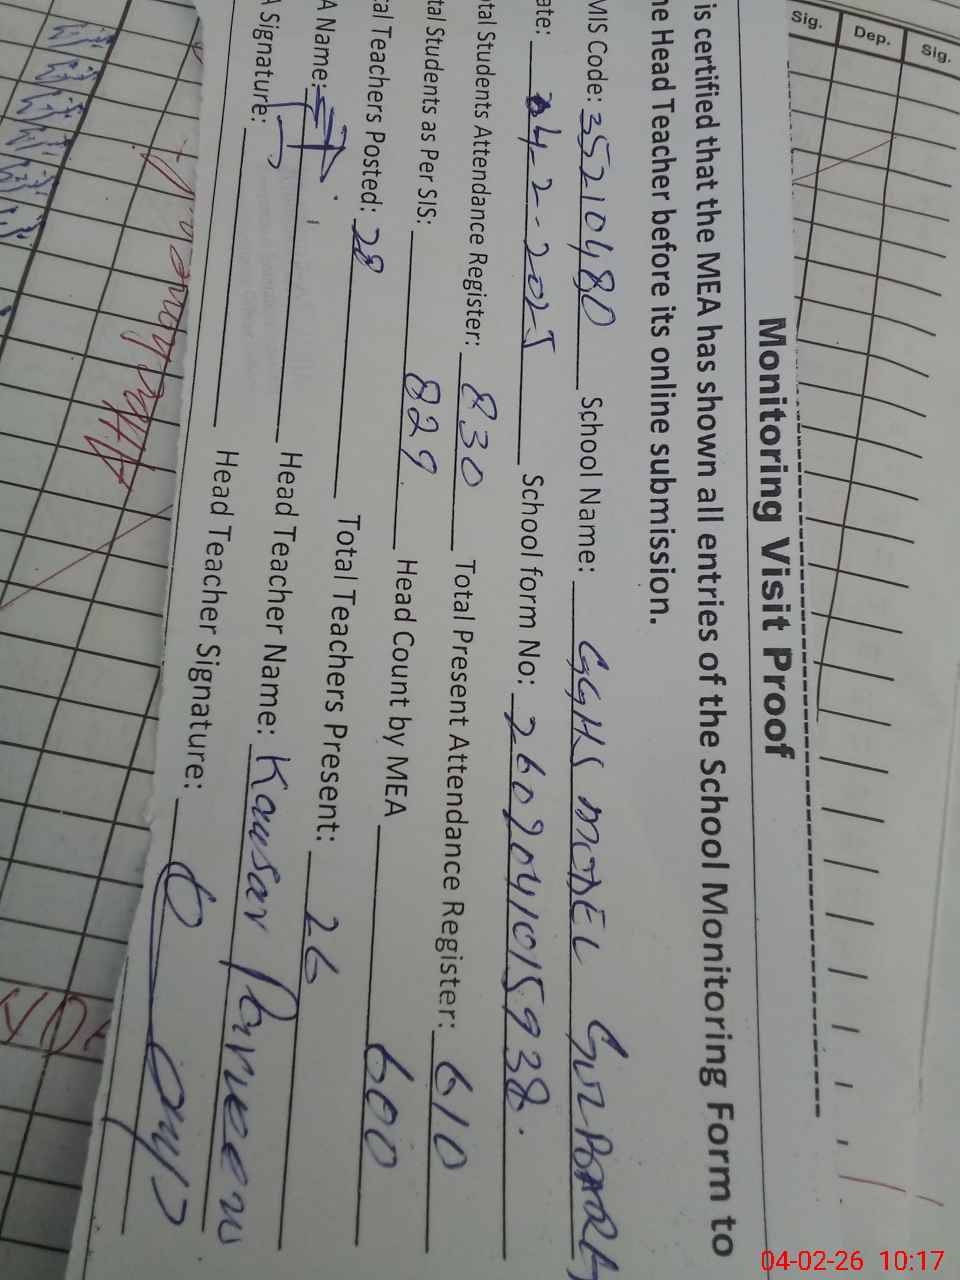 Sig. Dep. Sig.
Monitoring Visit Proof
is certified that the MEA has shown all entries of the School Monitoring Form to
he Head Teacher before its online submission.
MIS Code: 35210480 School Name: GGHS MODEL
ate: 04-2-2025 School form No: 2602041015938.
tal Students Attendance Register: 830 Total Present Attendance Register: 610
tal Students as Per SIS: 829 Head Count by MEA 600
al Teachers Posted: 28 Total Teachers Present: 26
A Name: Head Teacher Name: Kausar Parveen
A Signature: Head Teacher Signature:
04-02-26 10:17